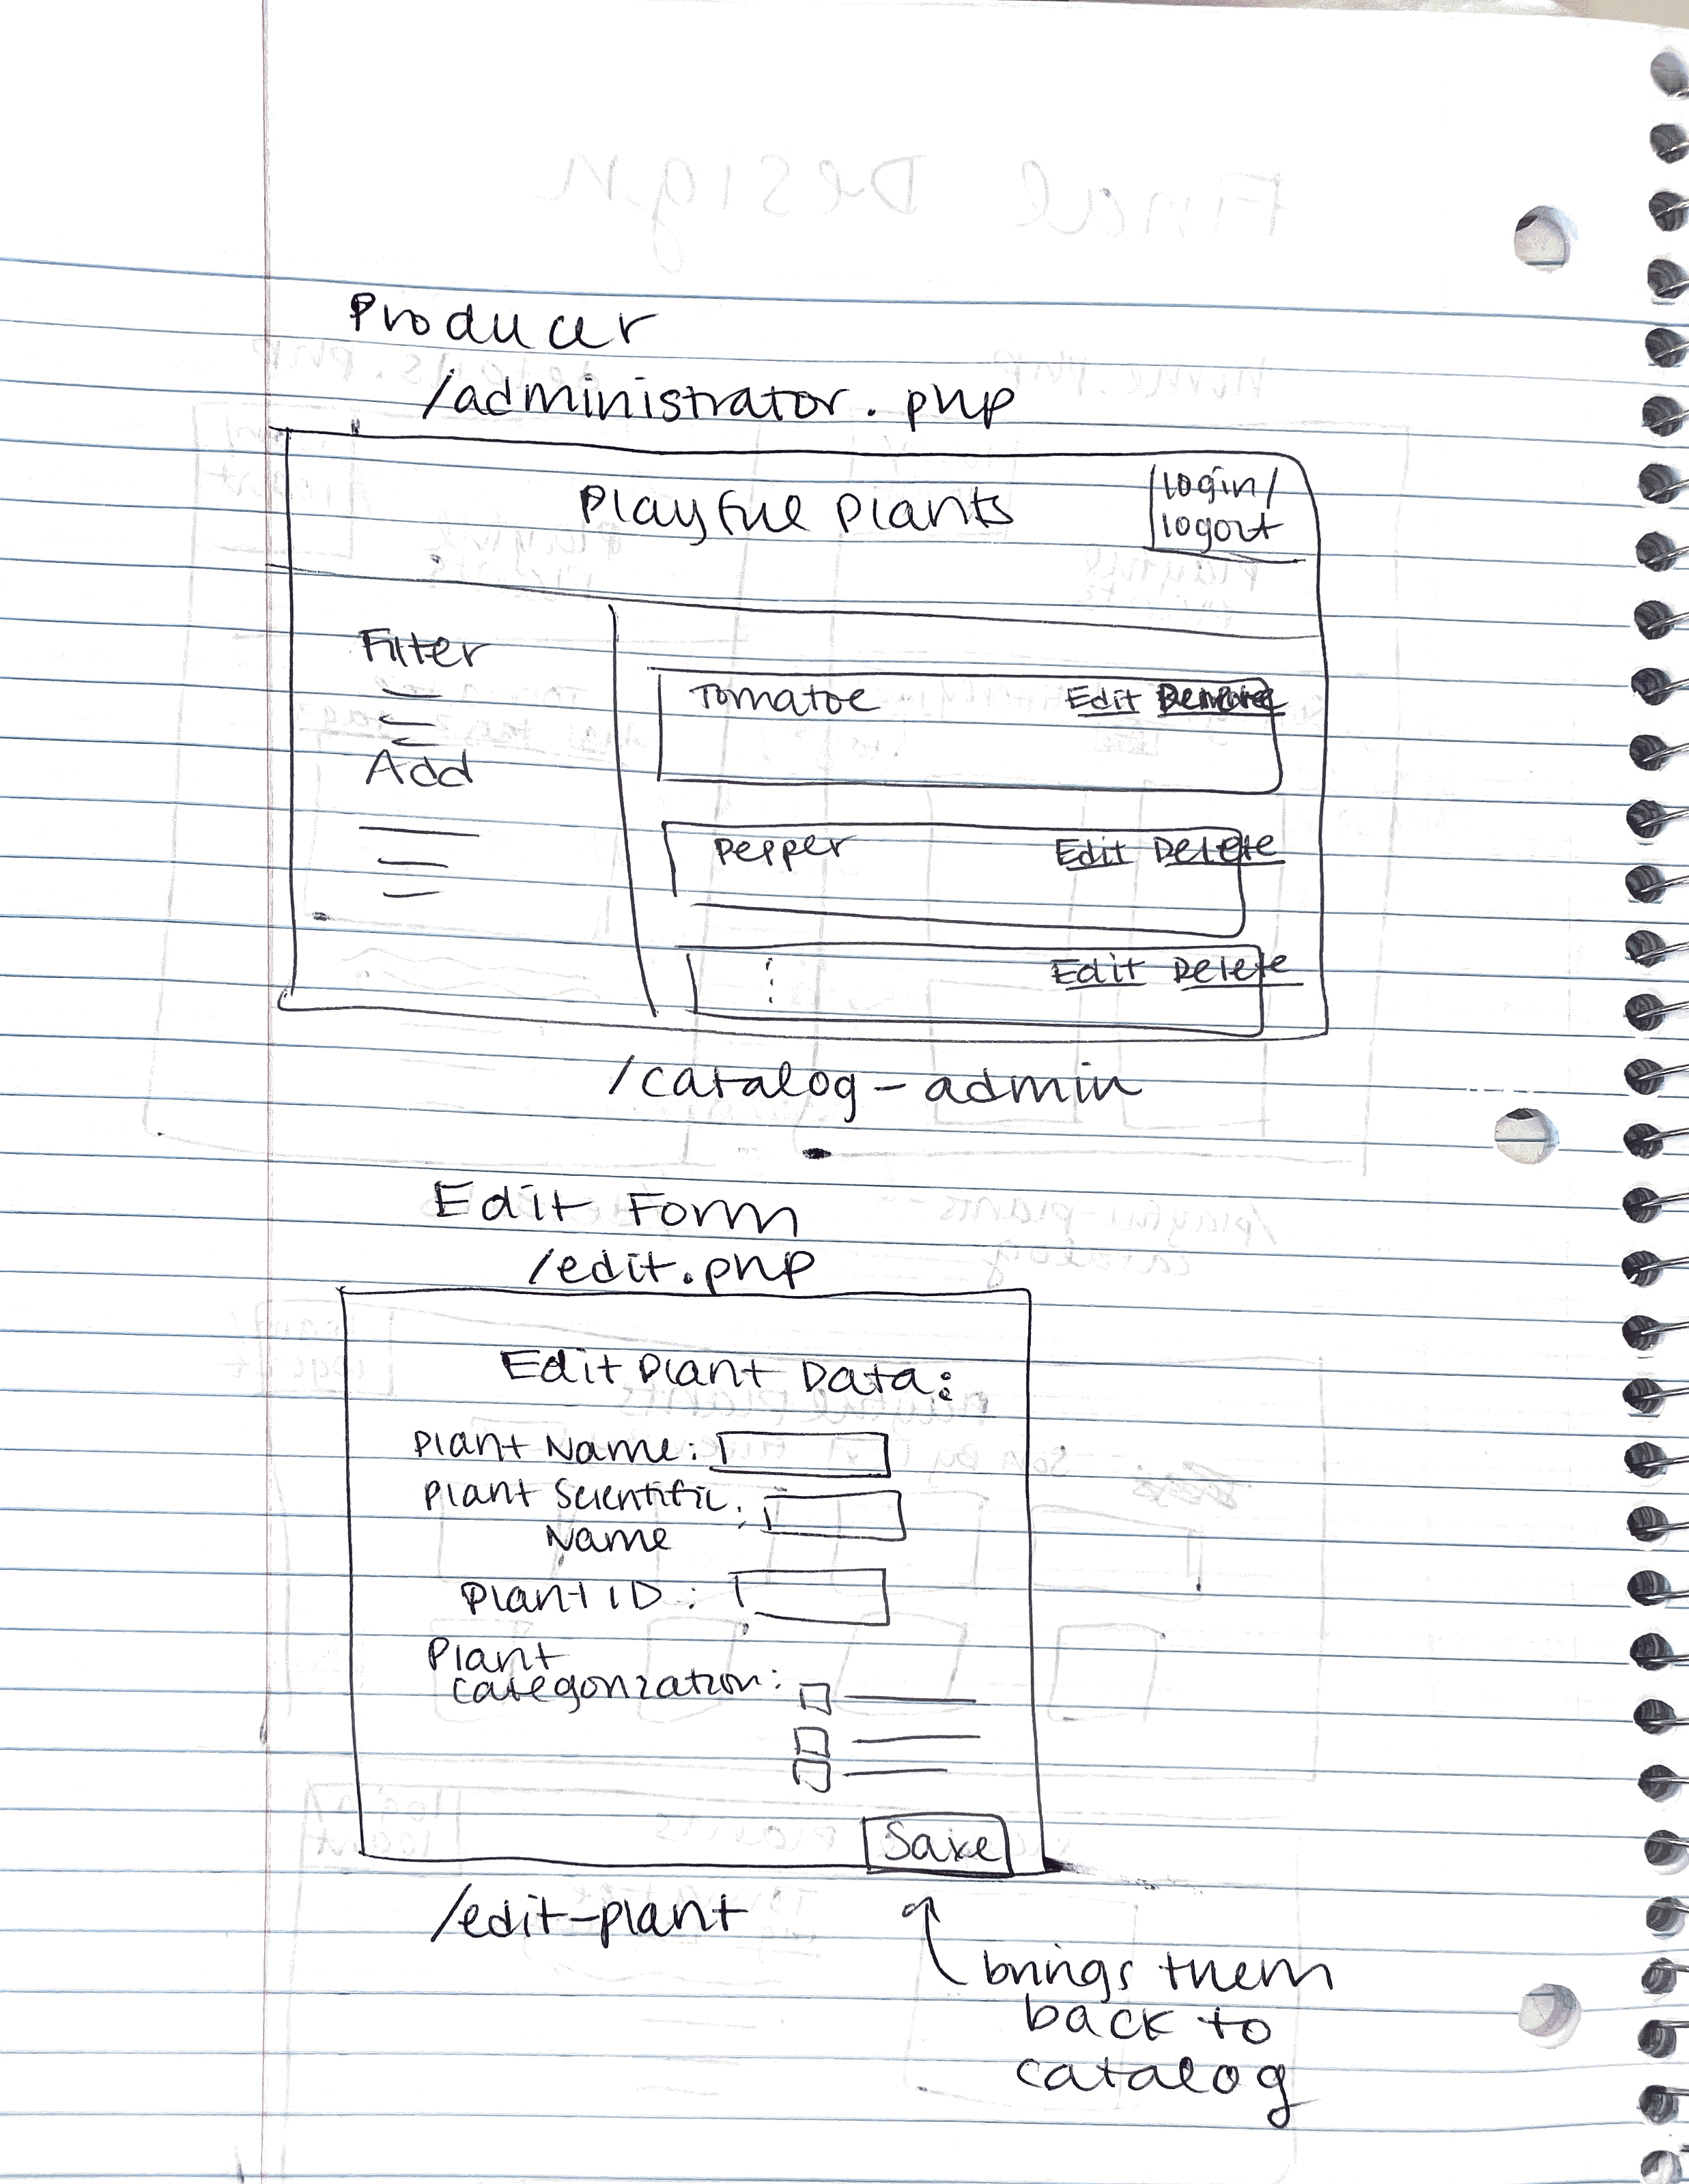 Producer
/administrator.php
Playful Plants
login/
logout
Filter
Add
Tomatoe Edit
Pepper Edit Delete
Edit Delete
/catalog-admin
Edit Form
/edit.php
Edit Plant Data:
Plant Name:
Plant Scientific:
Name
Plant ID:
Plant
Categorization:
Save
/edit-plant
brings them
back to
catalog
Final Design